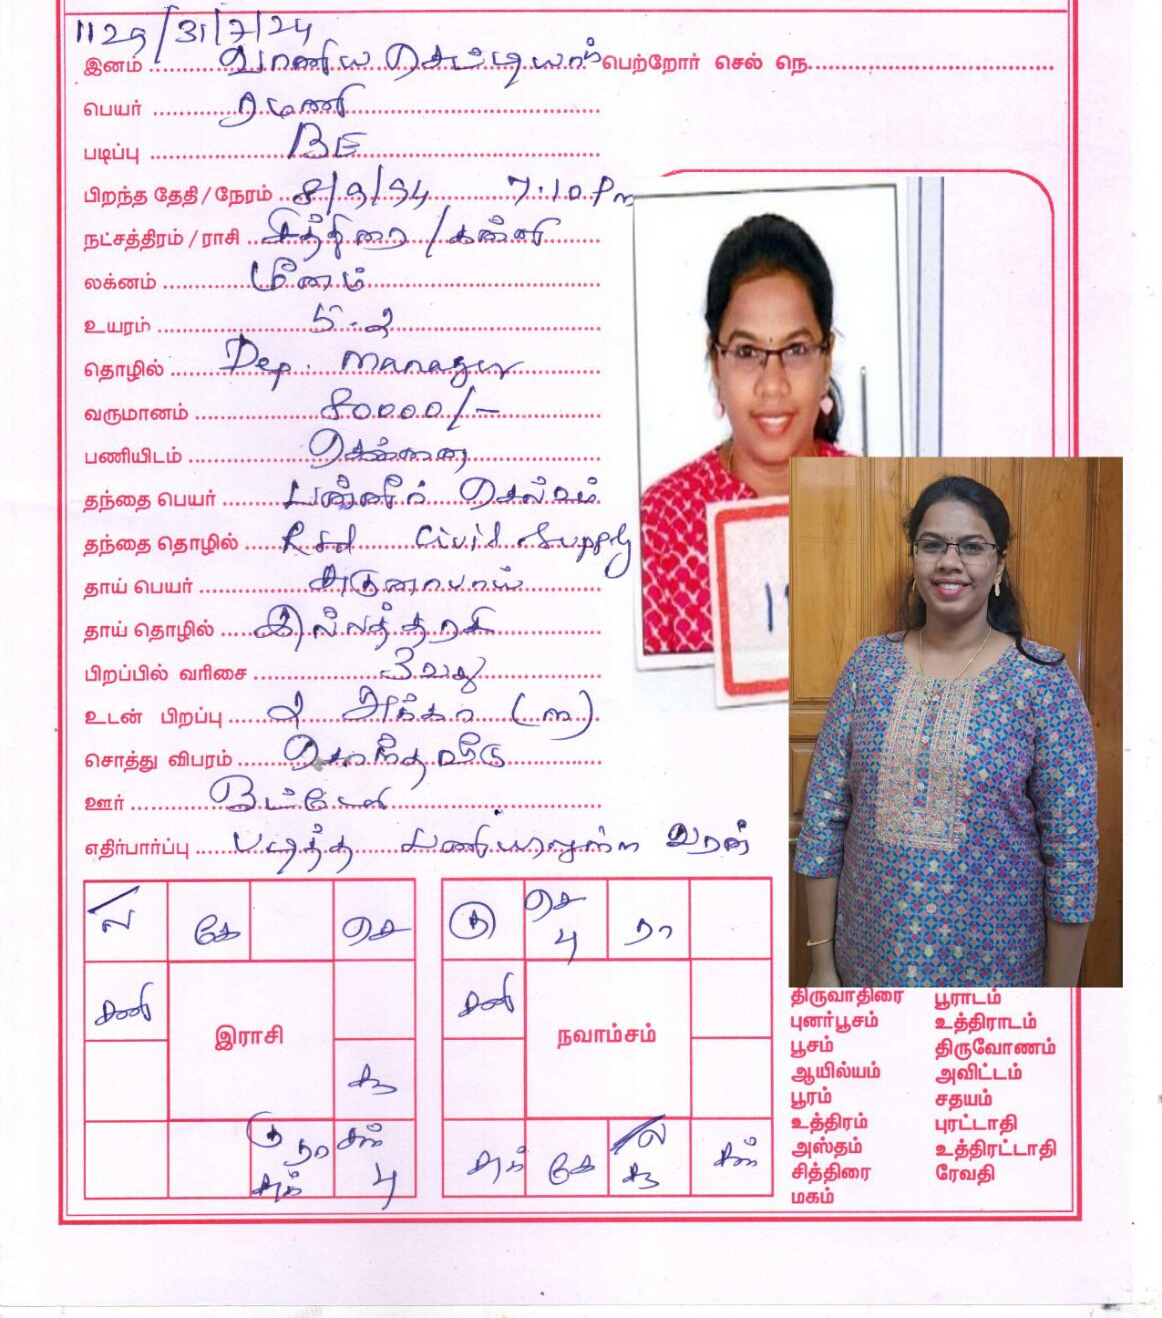 1129/31/7/24
இனம் வாணிய செட்டியார் பெற்றோர் செல் நெ.
பெயர் ரமணி
படிப்பு BE
பிறந்த தேதி / நேரம் 8/9/94 7.10 Pm
நட்சத்திரம் / ராசி சித்திரை / கன்னி
லக்னம் மீனம்
உயரம் 5.2
தொழில் Dep. Manager
வருமானம் 80000/-
பணியிடம் சென்னை
தந்தை பெயர் பன்னீர் செல்வம்
தந்தை தொழில் Rtd Civil Supply
தாய் பெயர் அருனாபாய்
தாய் தொழில் இல்லத்தரசி
பிறப்பில் வரிசை 3வது
உடன் பிறப்பு 2 அக்கா (ம)
சொத்து விபரம் சொந்த வீடு
ஊர்
எதிர்பார்ப்பு படித்த பணியாலுள்ள வரன்
ல கே செ
சனி
இராசி
சூ
கு ரா சுக் சந் பு
கு செ பு ரா
சனி
நவாம்சம்
சுக் கே ல சூ சந்
திருவாதிரை பூராடம்
புனர்பூசம் உத்திராடம்
பூசம் திருவோணம்
ஆயில்யம் அவிட்டம்
பூரம் சதயம்
உத்திரம் புரட்டாதி
அஸ்தம் உத்திரட்டாதி
சித்திரை ரேவதி
மகம்